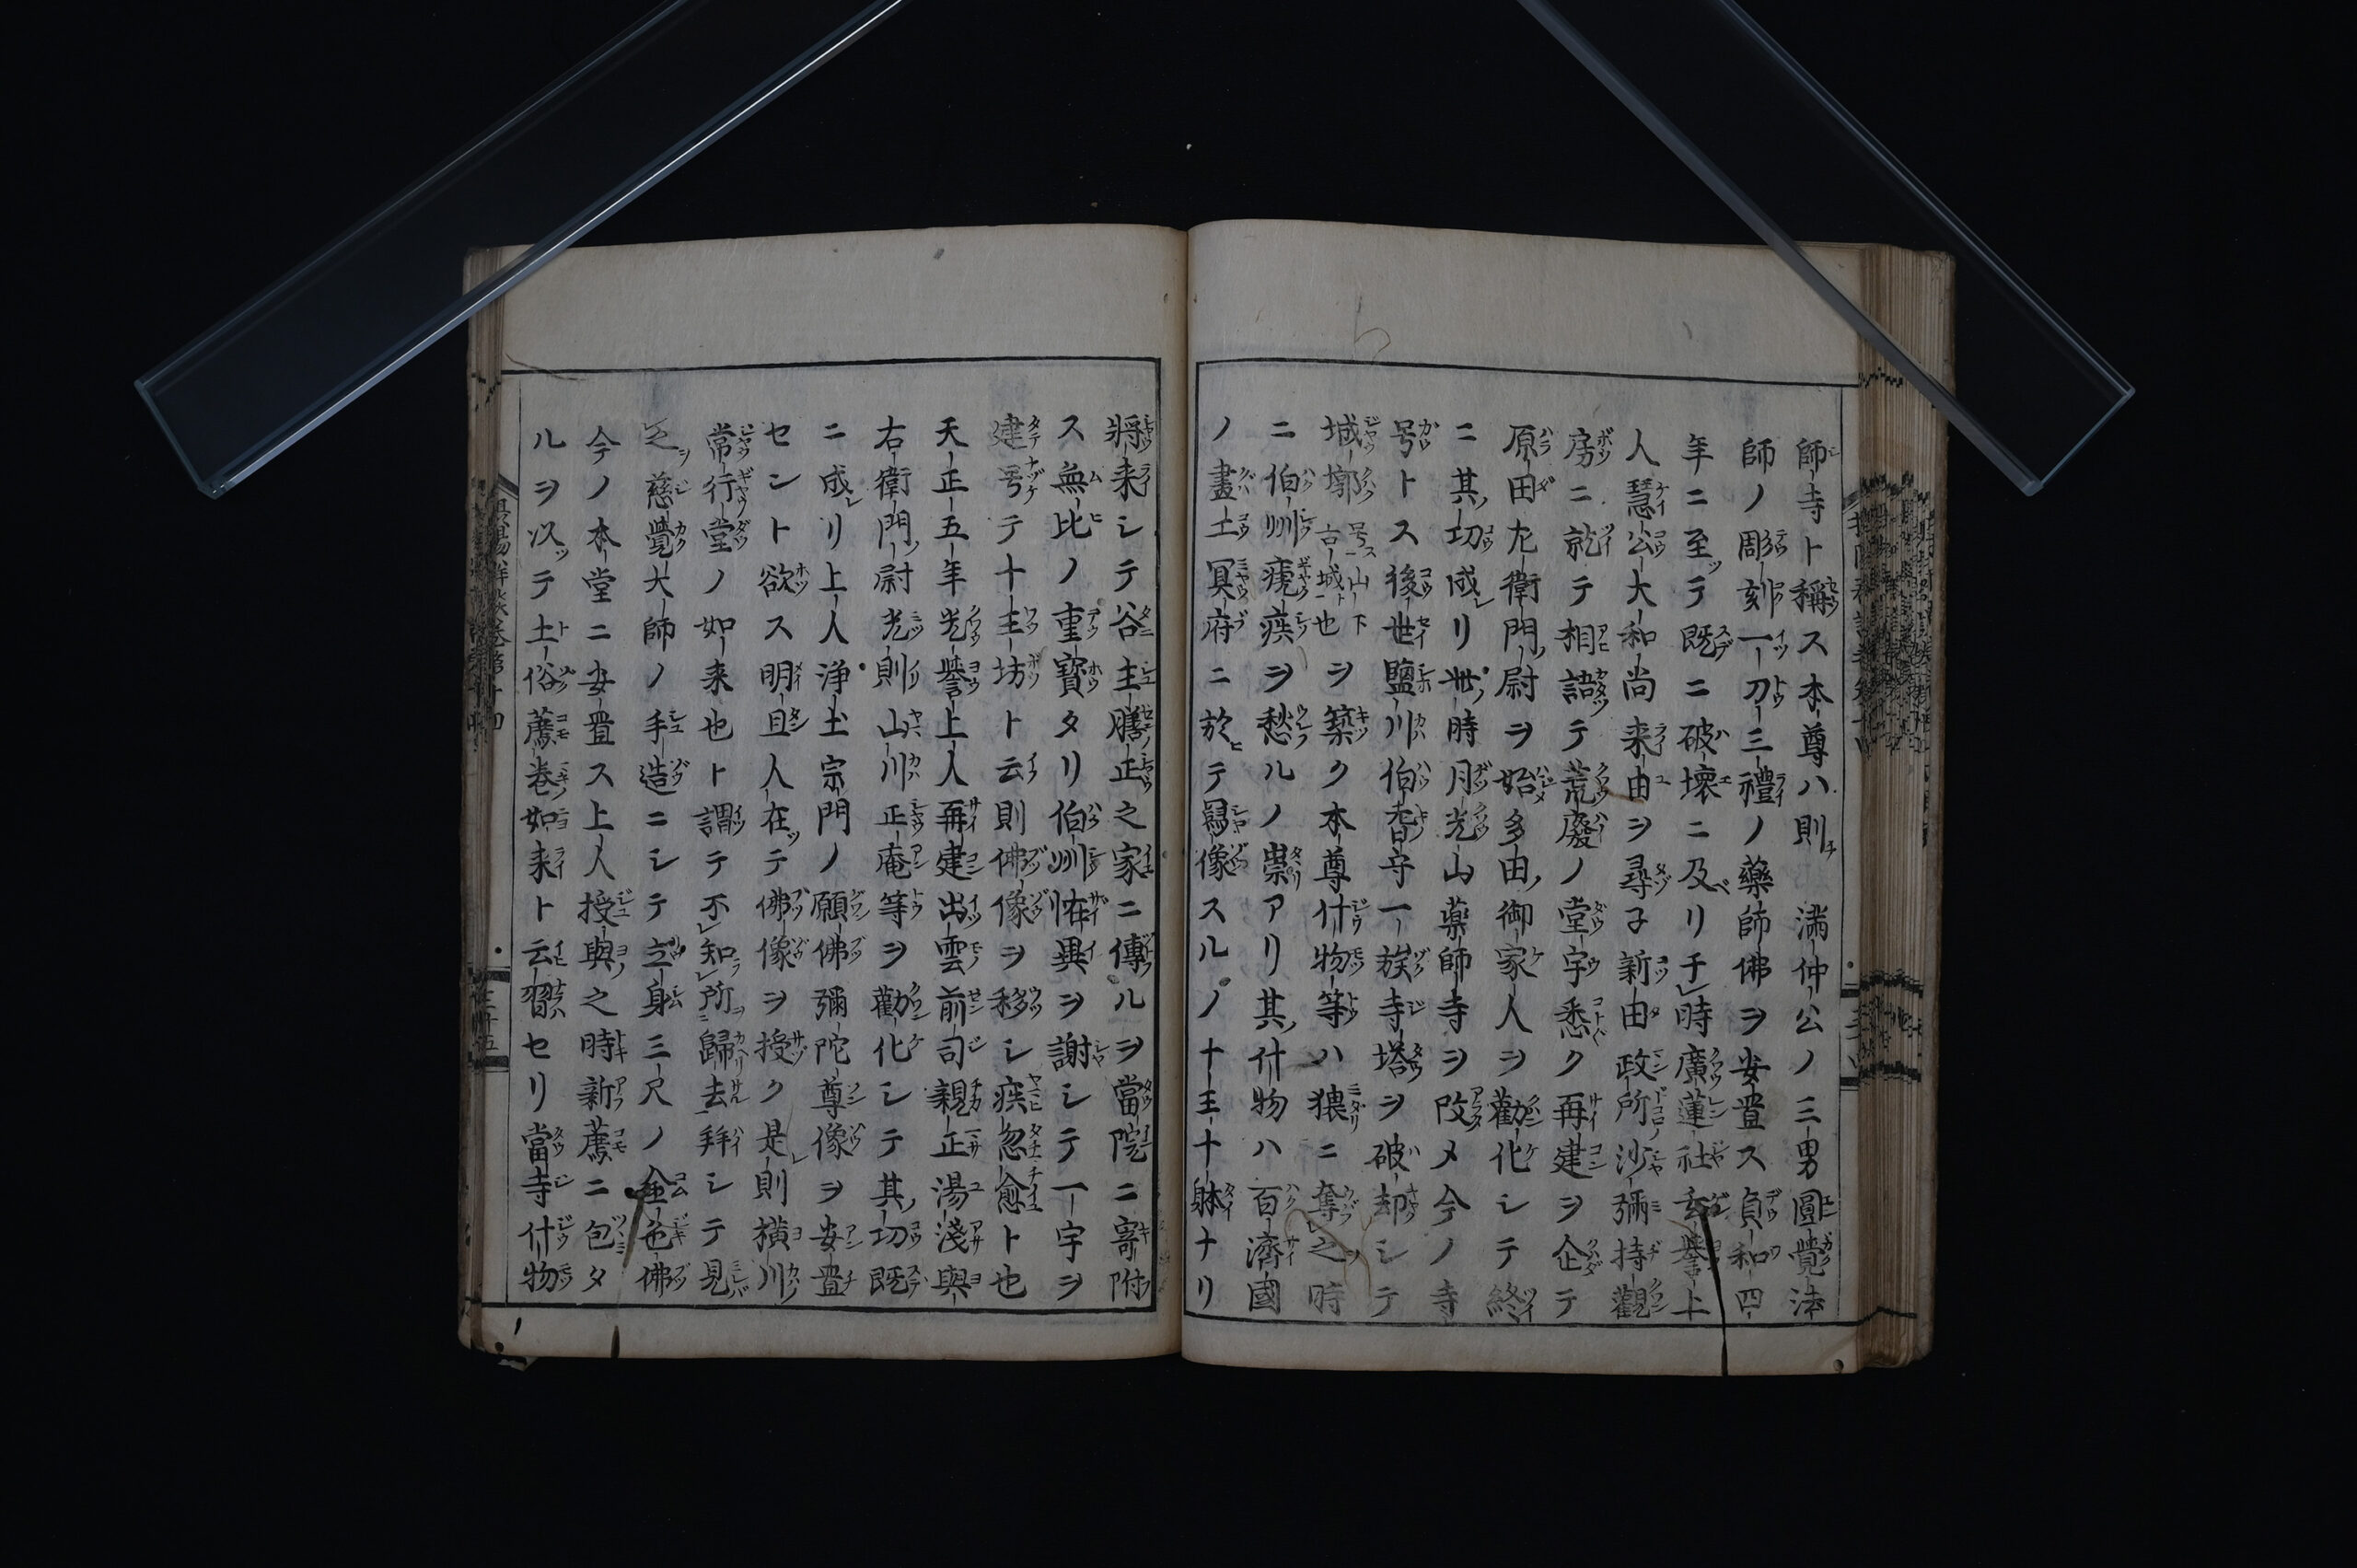 師寺ト稱ス本尊ハ則満仲公ノ三男圓覺法
師ノ彫刻一刀三禮ノ藥師佛ヲ安置ス貞和四
年ニ至テ既ニ破壞ニ及リ于時廣蓮社玄譽上
人慧公大和尚来由ヲ尋子新田政所沙彌持觀
房ニ就テ相語テ荒廢ノ堂宇悉ク再建ヲ企テ
原田左衛門尉ヲ始多田御家人ヲ勸化シテ終
ニ其切成リ此時月光山薬師寺ヲ改メ今ノ寺
号トス後世鹽川伯耆守一族寺塔ヲ破却シテ
城墎号山下古城也ヲ築ク本尊什物等ハ猥ニ奪之時
ニ伯州瘧疾ヲ愁ルノ祟アリ其什物ハ百濟國
ノ畫工冥府ニ於テ寫像スルノ十王十躰ナリ
將来シテ谷主膳正之家ニ傳ルヲ當院ニ寄附
ス無比ノ重寶タリ伯州恠異ヲ謝シテ一宇ヲ
建号テ十王坊ト云則佛像ヲ移シ疾忽愈ト也
天正五年光譽上人再建出雲前司親正湯淺與
右衛門尉光則山川正庵等ヲ勸化シテ其切既
ニ成リ上人浄土宗門ノ願佛彌陀尊像ヲ安置
セント欲ス明旦人在テ佛像ヲ授ク是則橫川
常行堂ノ如来也ト謂テ不知所歸去拜シテ見
之慈覺大師ノ手造ニシテ立身三尺ノ金色佛
今ノ本堂ニ安置ス上人授與之時新薦ニ包タ
ルヲ以テ土俗薦卷如来ト云習セリ當寺什物